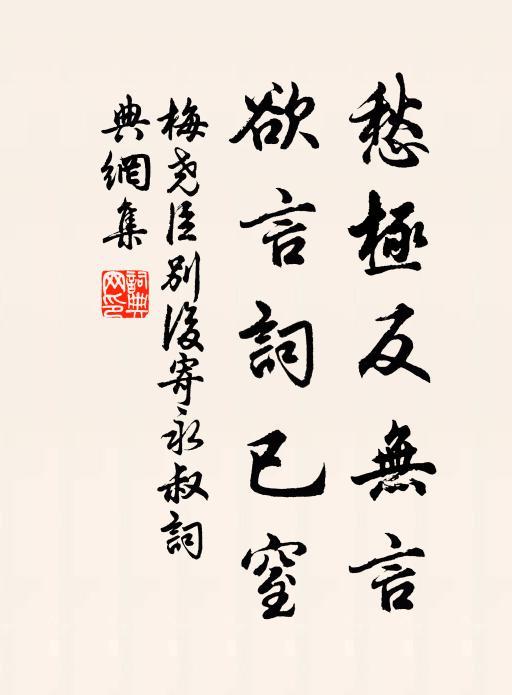 愁極反無言
欲言詞已窒
梅堯臣別後寄永叔詞
典網集
詞典網印